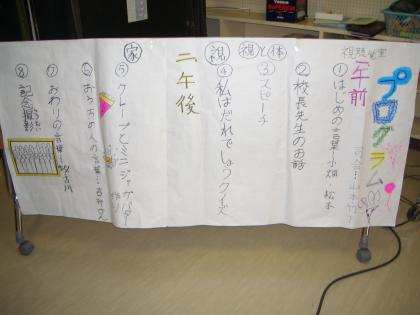 プログラム
視聴覚室
一午前
①はじめの言葉 小畑・松本
②校長先生のお話
③スピーチ
視と体
④私はだれでしょうクイズ
視
二午後
⑤クレープとミニジャガバター作り
家
⑥おうちの人の言葉
⑦おわりの言葉
⑧記念撮影